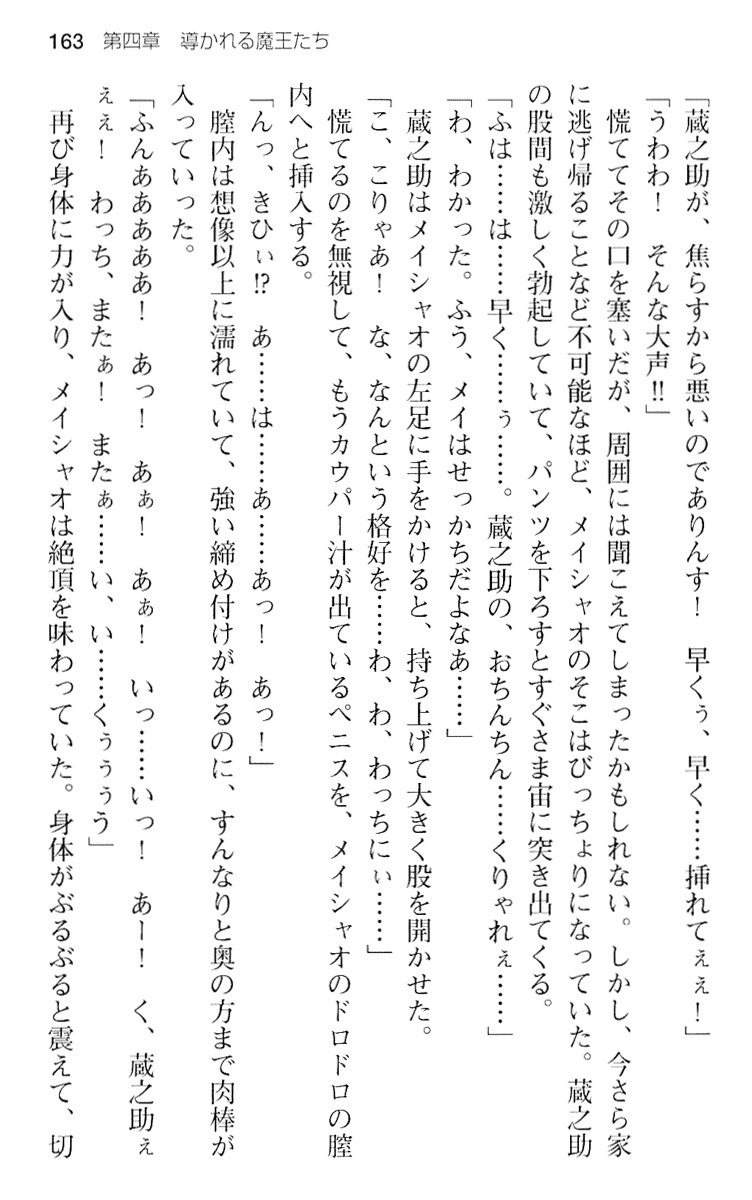 163　第四章　導かれる魔王たち
「蔵之助が、焦らすから悪いのでありんす！　早くぅ、早く……挿れてぇぇ！」
「うわわ！　そんな大声!!」
　慌ててその口を塞いだが、周囲には聞こえてしまったかもしれない。しかし、今さら家
に逃げ帰ることなど不可能なほど、メイシャオのそこはびっちょりになっていた。蔵之助
の股間も激しく勃起していて、パンツを下ろすとすぐさま宙に突き出てくる。
「ふは……は……早く……ぅ……。蔵之助の、おちんちん……くりゃれぇ……」
「わ、わかった。ふう、メイはせっかちだよなぁ……」
　蔵之助はメイシャオの左足に手をかけると、持ち上げて大きく股を開かせた。
「こ、こりゃあ！　な、なんという格好を……わ、わ、わっちにぃ……」
　慌てるのを無視して、もうカウパー汁が出ているペニスを、メイシャオのドロドロの膣
内へと挿入する。
「んっ、きひぃ!?　あ……は……あ……あっ！　あっ！」
　膣内は想像以上に濡れていて、強い締め付けがあるのに、すんなりと奥の方まで肉棒が
入っていった。
「ふんあああああ！　あっ！　あぁ！　あぁ！　いっ……いっ！　あー！　く、蔵之助ぇ
ぇぇ！　わっち、またぁ！　またぁ……い、い……くぅぅぅう」
　再び身体に力が入り、メイシャオは絶頂を味わっていた。身体がぶるぶると震えて、切